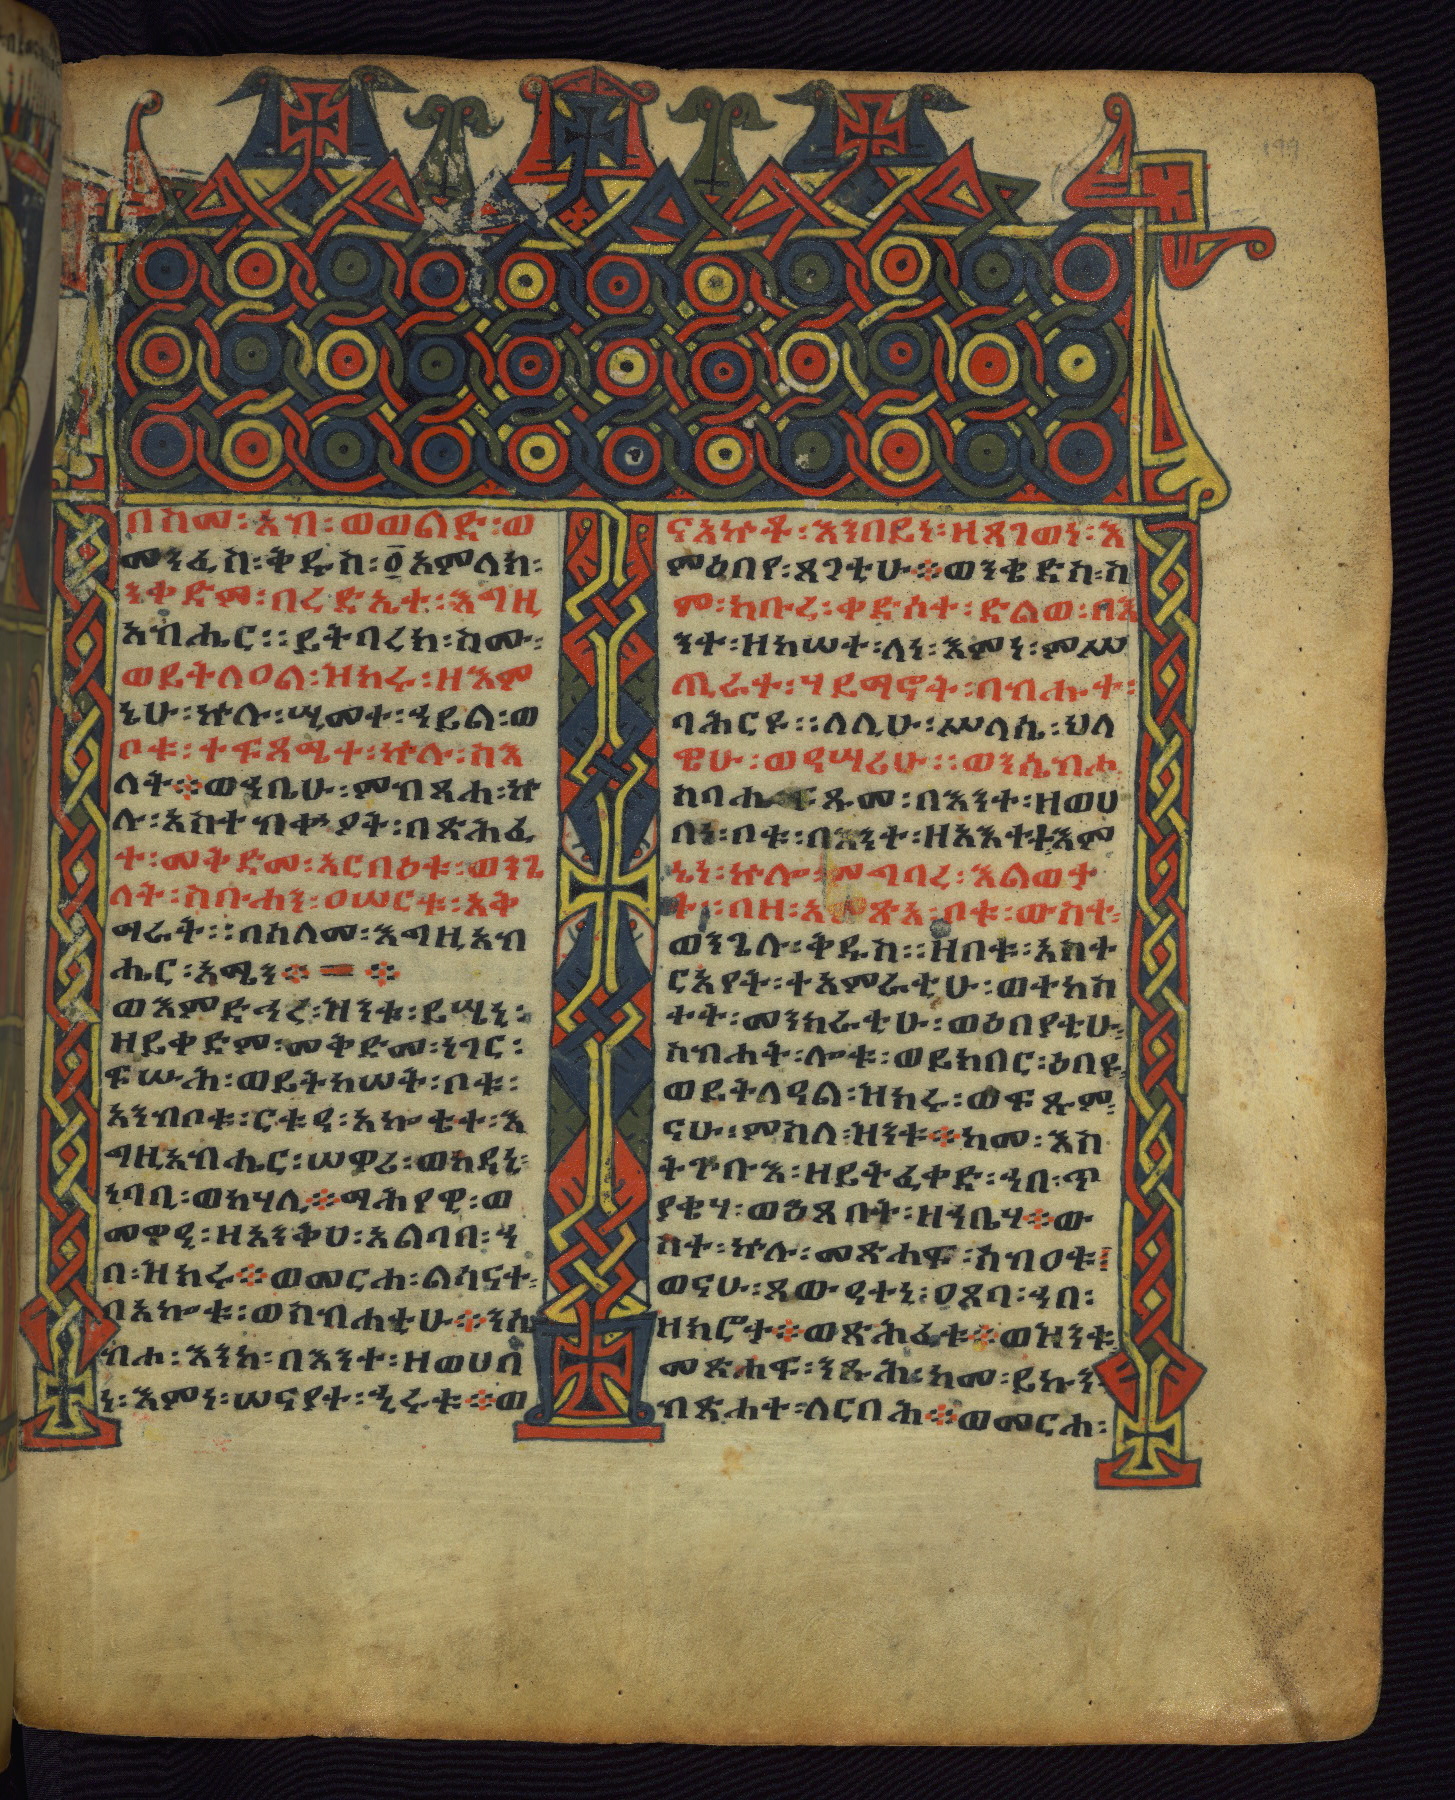 በስመ፡ አብ፡ ወወልድ፡ ወ
መንፈስ፡ ቅዱስ፡ ፩አምላክ፡
ንቀድም፡ በረድኤተ፡ እግዚ
አብሔር፡፡ ይትባረክ፡ ስሙ፡
ወይትለዐል፡ ዝክሩ፡ ዘእም
ኔሁ፡ ኵሉ፡ ሢመተ፡ ኀይል፡ ወ
ቦቱ፡ ተፍጻሜተ፡ ኵሉ፡ ስእ
ለት፨ ወኀቤሁ፡ ምብጻሐ፡ ኵ
ሉ፡ አስተብቍዖት፡ በጽሕፈ
ተ፡ መቅድመ፡ አርበዕቱ፡ ወንጌ
ላት፡ ስቡሐን፡ ዐሠርቱ፡ አቅ
ማራት፡፡ በሰላመ፡ እግዚአብ
ሔር፡ አሜን፨ ፨
ወእምድኅረ፡ ዝንቱ፡ ይሤኒ፡
ዘይቀድም፡ መቅድመ፡ ነገር፡
ፍሡሕ፡ ወይትከሠት፡ ቦቱ፡
አንብቦቱ፡ ርቱዓ፡ አኰቴተ፡ እ
ግዚአብሔር፡ ሠዋሪ፡ ወከዳኒ፡
ነባቢ፡ ወከሃሊ፨ ማሕየዊ፡ ወ
መዋዒ፡ ዘአንቅሀ፡ አልባበ፡ ኀ
በ፡ ዝክሩ፨ ወመርሐ፡ ልሳናተ፡
በአኰቱ፡ ወስብሐቲሁ፨ ንሴ
ብሐ፡ እንከ፡ በእንተ፡ ዘወሀበ
ነ፡ እምነ፡ ሠናያተ፡ ኂሩቱ፨ ወ
ናአኵቶ፡ እንበይነ፡ ዘጸገወነ፡ እ
ምዕበየ፡ ጸጋቲሁ፨ ወንቄድስ፡ ስ
ም፡ ክቡረ፡ ቀድሰተ፡ ድልወ፡ በእ
ንተ፡ ዘከሠተ፡ ለነ፡ እምነ፡ ምሥ
ጢራተ፡ ሃይማኖት፡ በብሑተ፡
ባሕርዩ፡፡ ለሊሁ፡ ሥላሴ፡ ህላ
ዌሁ፡ ወዳሣሬሁ፡፡ ወንሴብሐ
ስባሐ ፍጹመ፡ በእንተ፡ ዘወሀ
በነ፡ ቦቱ፡ በእንተ፡ ዘአእተተ፡ እም
ኔነ፡ ኵሎ፡ ምግባረ፡ እልወት
ት፡፡ በዘ፡ አምጽአ፡ ቦቱ፡ ውስተ፡
ወንጌሉ፡ ቅዱስ፡፡ ዘቦቱ፡ አስተ
ርአየት፡ ተአምራቲሁ፡ ወተከስ
ተት፡ መንክራቲሁ፡ ወዕበያቲሁ፡
ስብሐት፡ ሎቱ፡ ወይከበር፡ ዕበየ፡
ወይትለዓል፡ ዝክሩ፡ ወፍጹም፡
ናሁ፡ ምስለ፡ ዝንቱ፨ ከመ፡ እስ
ትጕቡእ፡ ዘይትፈቀድ፡ ኀበ፡ ጥ
ያቄሃ፡ ወዕጸበት፡ ዘኀቤሃ፨ ው
ስተ፡ ኵሉ፡ መጽሐፍ፡ አብዐቱ፡
ወናሁ፡ ጸውዓተኒ፡ ዐጸባ፡ ኀበ፡
ዘክሮተ፨ ወጽሕፈቱ፨ ወዝንቱ፡
መጽሐፍ፡ ንጹሕ፡ ከመ፡ ይኩን፡
ብጽሐተ፡ ለርቡሕ፨ ወመርሐ፡